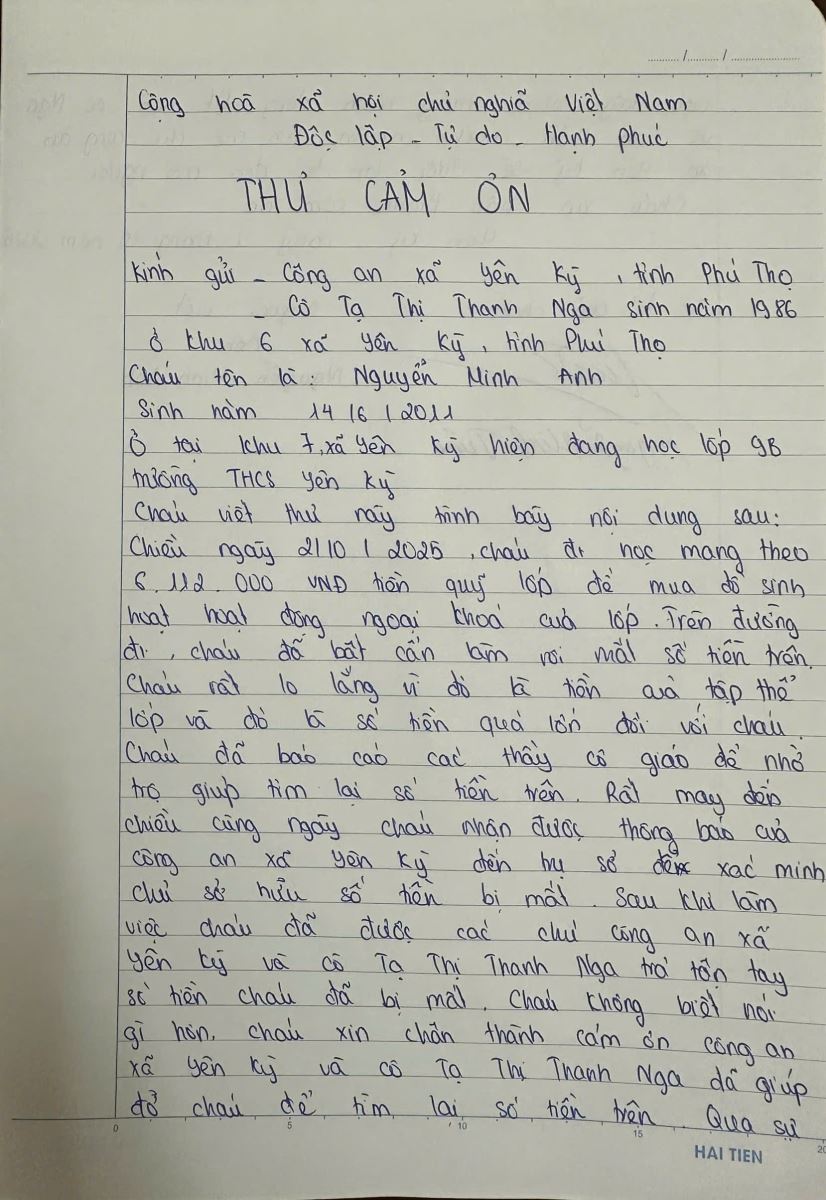 ...../...../..........
Cộng hoà xã hội chủ nghĩa Việt Nam
Độc lập - Tự do - Hạnh phúc
THƯ CẢM ƠN
Kính gửi - Công an xã Yên Kỳ, tỉnh Phú Thọ
- Cô Tạ Thị Thanh Nga sinh năm 1986
ở khu 6 xã Yên Kỳ, tỉnh Phú Thọ
Cháu tên là: Nguyễn Minh Anh
Sinh năm 14/6/2011
Ở tại khu 7, xã Yên Kỳ hiện đang học lớp 9B
trường THCS Yên Kỳ
Cháu viết thư này trình bày nội dung sau:
Chiều ngày 2/10/2025, cháu đi học mang theo
6.112.000 VNĐ tiền quỹ lớp để mua đồ sinh
hoạt hoạt động ngoại khoá của lớp. Trên đường
đi, cháu đã bất cẩn làm rơi mất số tiền trên.
Cháu rất lo lắng vì đó là tiền của tập thể
lớp và đó là số tiền quá lớn đối với cháu.
Cháu đã báo cáo các thầy cô giáo để nhờ
trợ giúp tìm lại số tiền trên. Rất may đến
chiều cùng ngày cháu nhận được thông báo của
công an xã Yên Kỳ đến trụ sở xác minh
chủ sở hữu số tiền bị mất. Sau khi làm
việc cháu đã được các chú công an xã
Yên Kỳ và cô Tạ Thị Thanh Nga trả tận tay
số tiền cháu đã bị mất. Cháu không biết nói
gì hơn, cháu xin chân thành cảm ơn công an
xã Yên Kỳ và cô Tạ Thị Thanh Nga đã giúp
đỡ cháu để tìm lại số tiền trên. Qua sự
0 5 10 15 20
HAI TIEN